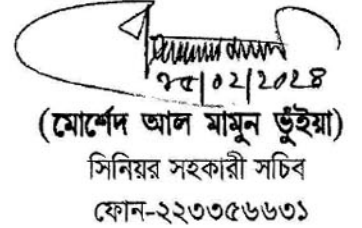 ২৫|০২|২০২৪
(মোর্শেদ আল মামুন ভূঁইয়া)
সিনিয়র সহকারী সচিব
ফোন-২২৩৩৫৬৬৩১